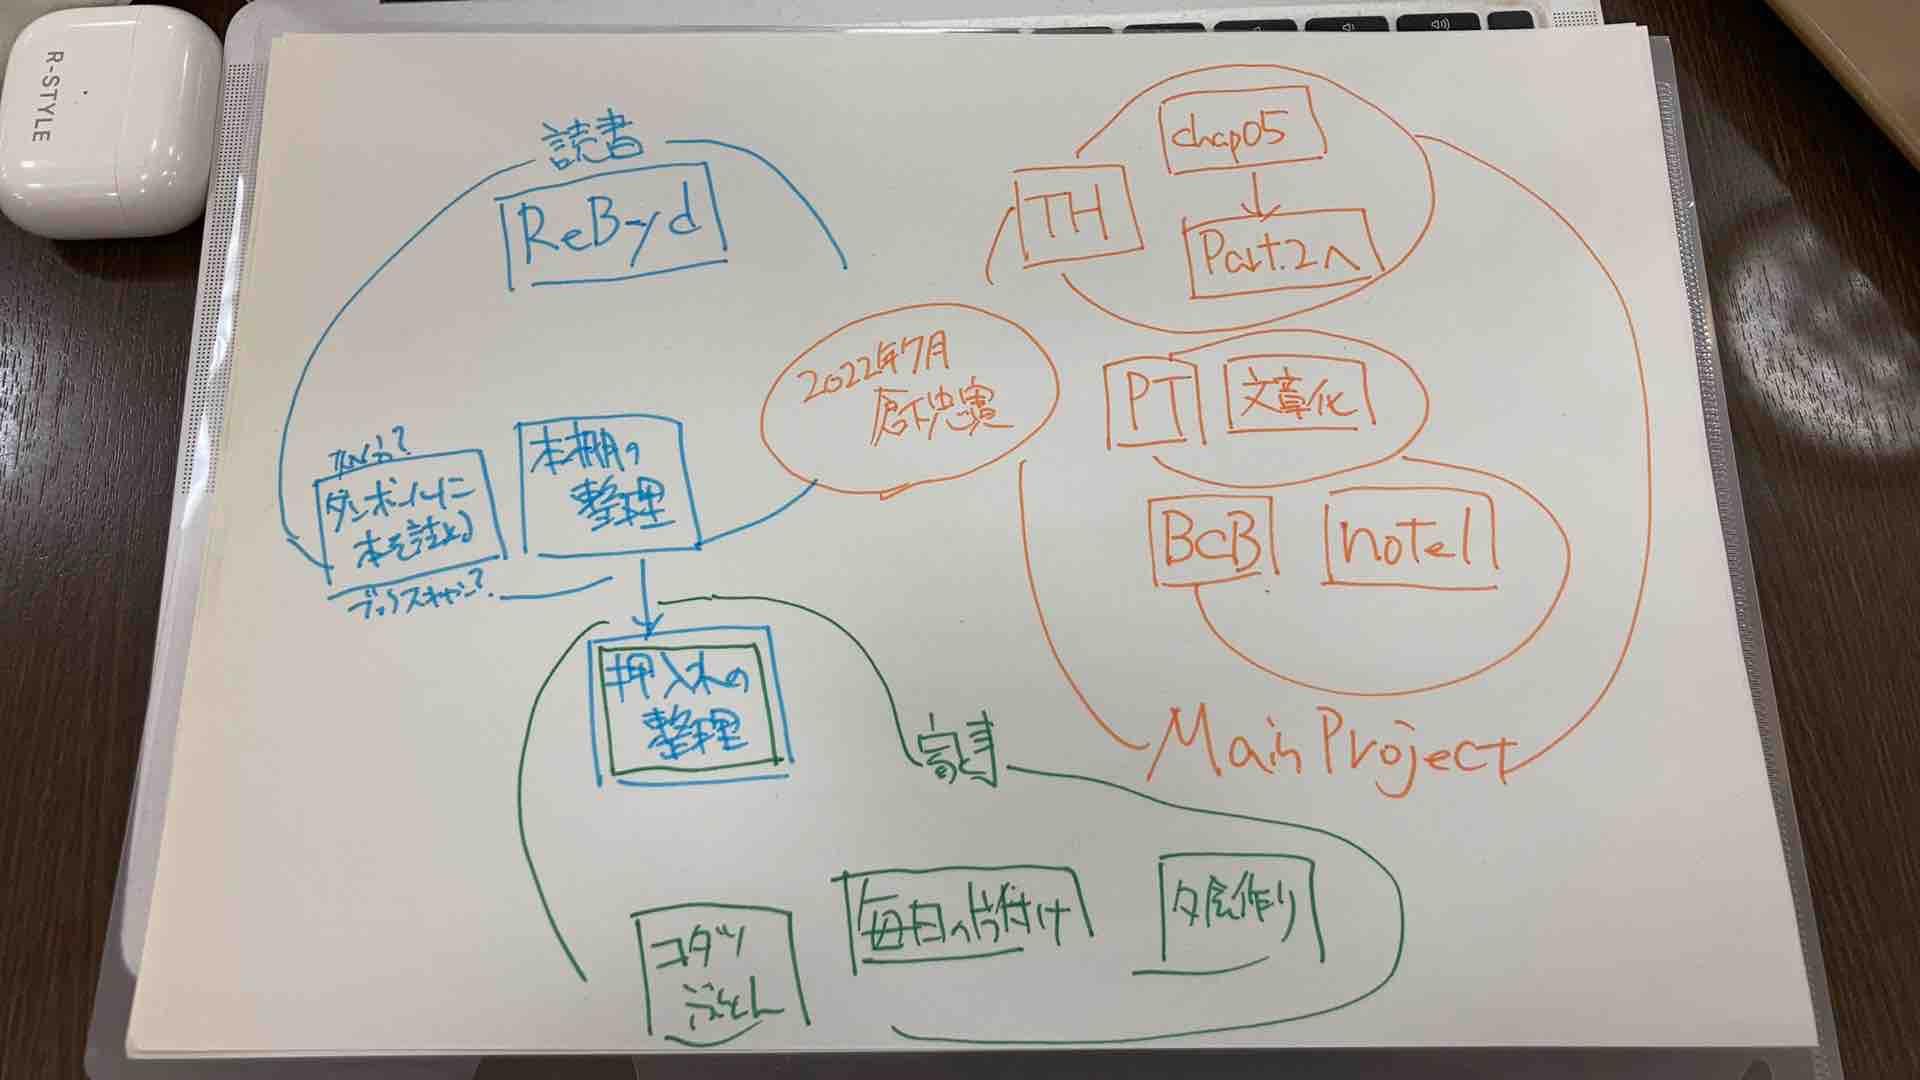 R-STYLE
読書
ReB-yd
chap05
TH
Part.2へ
2022年7月
倉下忠憲
PT
文章化
本棚の
整理
ダンボールに
本を詰める
ブックスキャン?
BCB
note1
押入れの
整理
家事
Main Project
毎日の片付け
夕食作り
コタツ
ぶとん